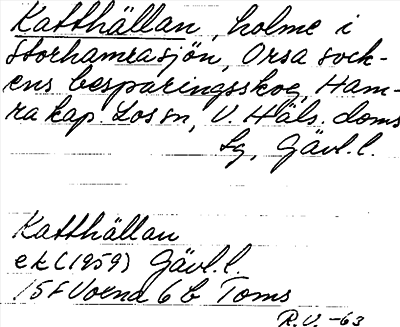 Katthällan, holme i
Storhamrasjön, Orsa sock-
ens besparingsskog, Ham-
ra kap. Los sn, V. Häls. doms
Lg, Gävl.l.
Katthällan
ek (1959) Gävl.l.
15F Voxna 6b Toms
R.V. -63